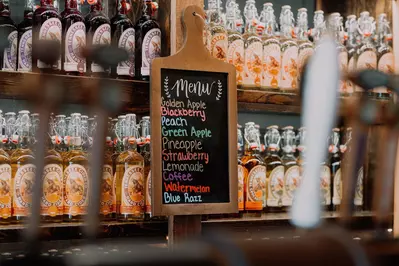 Menu
Golden Apple
Blackberry
Peach
Green Apple
Pineapple
Strawberry
Lemonade
Coffee
Watermelon
Blue Razz